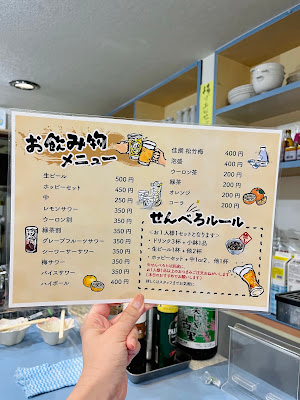 お飲み物
メニュー
生ビール 500円
ホッピーセット 450円
中 250円
レモンサワー 350円
ウーロン割 350円
緑茶割 350円
グレープフルーツサワー 350円
シークワーサーサワー 350円
梅サワー 350円
バイスサワー 350円
ハイボール 400円
佳撰 松竹梅 400円
泡盛 400円
ウーロン茶 200円
緑茶 200円
オレンジ 200円
コーラ 200円
せんべろルール
・ドリンク3杯＋小鉢1品
・生ビール1杯＋他2杯
・ホッピーセット＋中1or2、他1杯